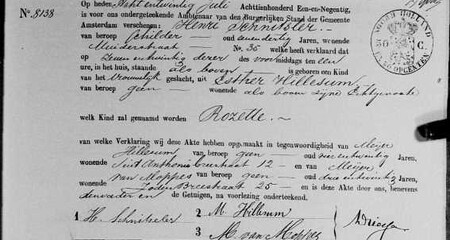 Op heden Acht en twintig Juli Achttienhonderd Een-en-Negentig,
is voor ons ondergeteekende Ambtenaar van den Burgerlijken Stand der Gemeente
No. 8138
Amsterdam verschenen: Henri Schnitzler
van beroep Schilder oud een dertig Jaren,
wonende Muiderstraat No. 35 welke heeft verklaard dat
op Zeven en twintig dezer des voormiddags te een
ure, in het huis, staande als boven is geboren een Kind
van het vrouwelijk geslacht, uit Esther Hillesum
van beroep geen wonende als boven zijne Echtgenoote
welk Kind zal genaamd worden Rozette.
van welke Verklaring wij deze Akte hebben opgemaakt in tegenwoordigheid van Meijer
Hillesum van beroep geen oud Jaren,
wonende Sint Anthonie Breestraat 12 en van Meijer
van Moppes van beroep geen oud Jaren,
wonende Joden Breestraat 25 en is deze Akte door ons, benevens
den vader en de Getuigen, na voorlezing onderteekend.
1 H. Schnitzler 2 M. Hillesum
3 M. van Moppes
NOORD HOLLAND
50 C.